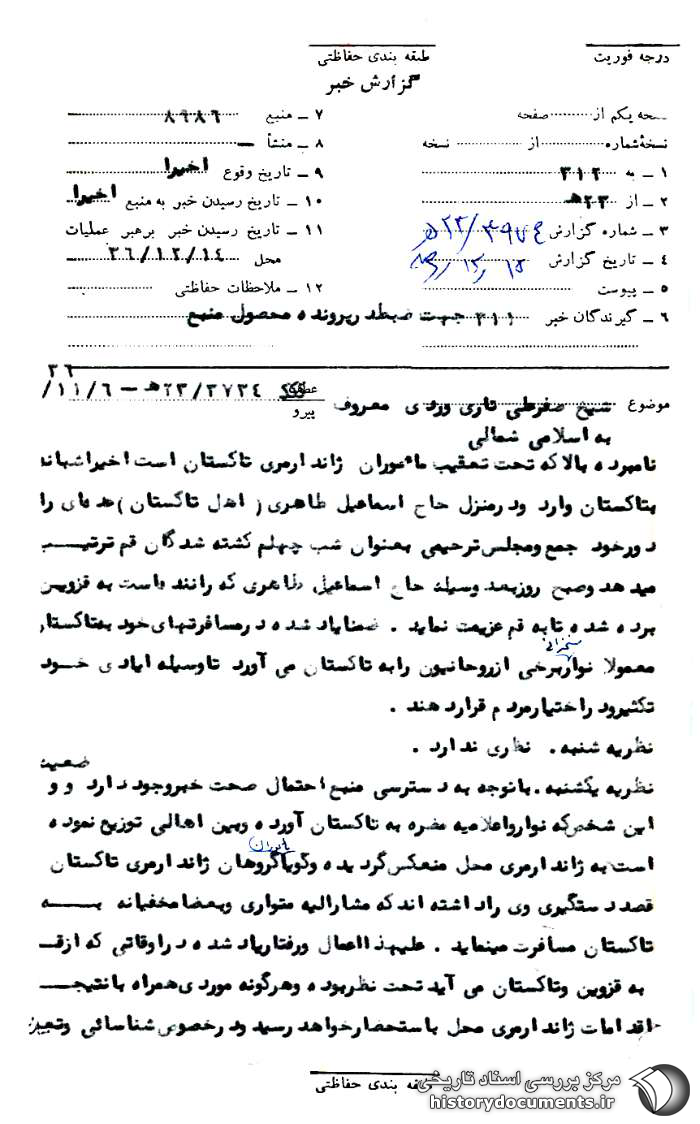 درجه فوریت
طبقه بندی حفاظتی
گزارش خبر
نسخه یکم از ......... صفحه
نسخهٔ شماره ......... از ......... نسخه
۱ ـ به ۳۱۲
۲ ـ از ۲۳ هـ
۳ ـ شماره گزارش
۴ ـ تاریخ گزارش
۵ ـ پیوست
۶ ـ گیرندگان خبر ۳۱۱ جهت ضبط در پرونده محصول منبع
۷ ـ منبع ۸۹۸۶
۸ ـ منشأ ـ
۹ ـ تاریخ وقوع اخیرا
۱۰ ـ تاریخ رسیدن خبر به منبع اخیرا
۱۱ ـ تاریخ رسیدن خبر برهبر عملیات
محل ۳۶/۱۲/۱۴
۱۲ ـ ملاحظات حفاظتی
موضوع شیخ صفرعلی تاری وردی معروف
به اسلامی شمالی
عطف
پیرو
۲۳/۳۷۲۴ هـ ـ ۳۶/۱۱/۶
نامبرده بالا که تحت تعقیب مأموران ژاندارمری تاکستان است اخیرا شبانه
بتاکستان وارد ودرمنزل حاج اسماعیل طاهری ( اهل تاکستان ) عده ای را
دورخود جمع ومجلس ترحیمی بعنوان شب چهلم کشته شدگان قم ترتیب
میدهد وصبح روزبعد وسیله حاج اسماعیل طاهری که راننده است به قزویین
برده شده تابه قم عزیمت نماید . ضمنا یاد شده درمسافرتهای خود بتاکستان
معمولا نوار سخنرانی برخی ازروحانیون رابه تاکستان می آورد تا وسیله ایادی خود
تکثیرو در اختیارمردم قرار دهند .
نظریه شنبه . نظری ندارد .
نظریه یکشنبه . باتوجه به دسترسی منبع احتمال صحت خبروجود دارد و وضعیت
این شخص که نوارواعلامیه مضره به تاکستان آورده وبین اهالی توزیع نموده
است به ژاندارمری محل منعکس گردیده وگویا گروهان ژاندارمری تاکستان
قصد دستگیری وی راداشته اند که مشارالیه متواری وبعضا مخفیانه بــه
تاکستان مسافرت مینماید . علیهذا اعمال ورفتاریاد شده دراوقاتی که ازقــ
به قزوین وتاکستان می آید تحت نظربوده وهرگونه موردی همراه بانتیجــ
اقدامات ژاندارمری محل باستحضارخواهد رسید ودرخصوص شناسائی وتعیین
طبقه بندی حفاظتی
مرکز بررسی اسناد تاریخی
historydocuments.ir